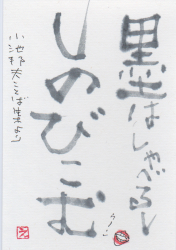 墨はしゃべるし
しのびこむ
小池邦夫ことば集より